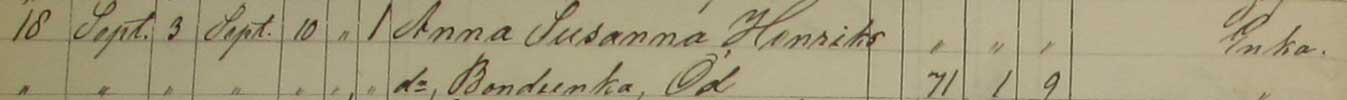 18 Sept. 3 Sept. 10 " 1 Anna Susanna Henriks " " " Enka.
" " " " " " " da, Bondeenka, Öd 71 1 9 "